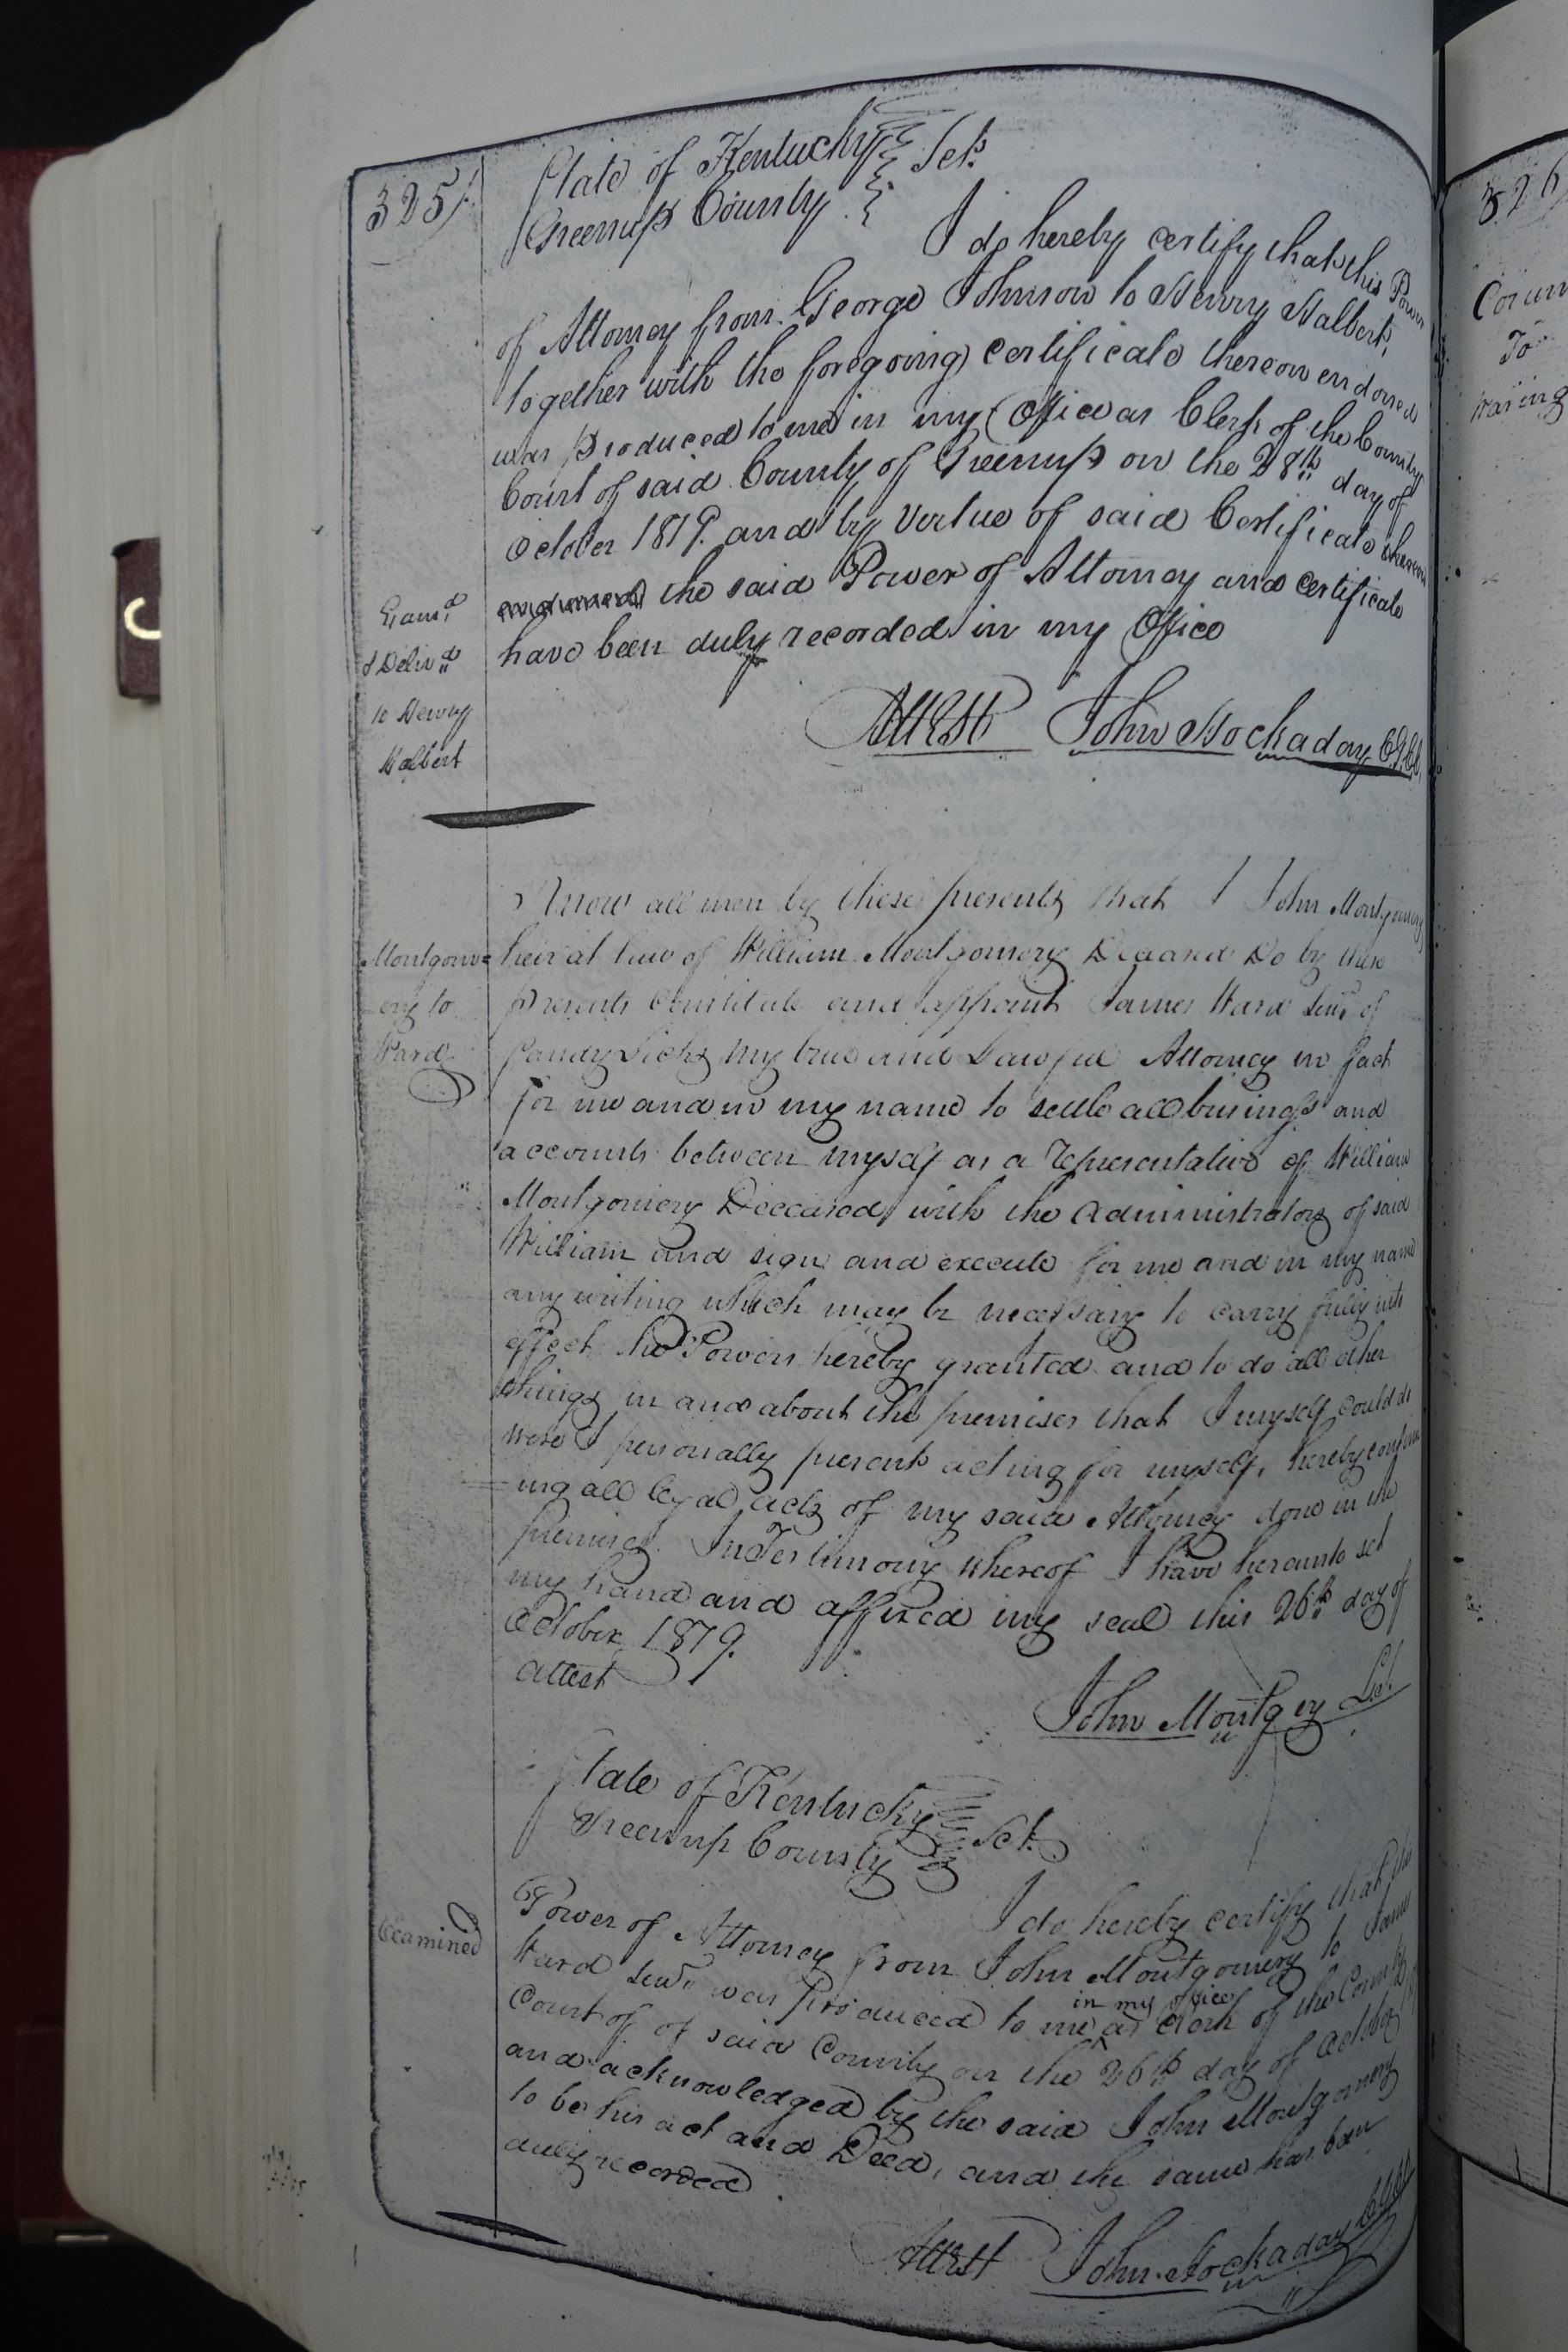 325/
State of Kentucky
Greenup County Sct.
I do hereby certify that this Power
of Attorney from George Johnson to Henry Halbert,
together with the foregoing certificate thereon endorsed
was produced to me in my Office as Clerk of the County
Court of said County of Greenup on the 28th day of
October 1819. and by virtue of said Certificate thereon
the said Power of Attorney and certificate
have been duly recorded in my Office
Attest John Hockaday C.G.C.C.
Exam.d
& Deliv.d
to Henry
Halbert
Know all men by these presents that I John Montgomery
heir at law of William Montgomery Deceased Do by these
presents Constitute and appoint James Ward Senr. of
my true and Lawful Attorney in fact
for me and in my name to settle all business and
accounts between myself as a representative of William
Montgomery Deceased, with the Administrators of said
William and sign and execute for me and in my name
any writing which may be necessary to carry fully into
effect the Powers hereby granted and to do all other
things in and about the premises that I myself could do
were I personally present acting for myself, hereby confirm
ing all legal acts of my said Attorney done in the
premises. In Testimony whereof I have hereunto set
my hand and affixed my seal this 26th day of
October 1819.
Attest
John Montgoy L.S.
Montgom=
ery to
Ward
State of Kentucky
Greenup County Sct.
I do hereby certify that this
Power of Attorney from John Montgomery to James
Ward Senr. was produced to me in my office as Clerk of the County
Court of of said County on the 26th day of October
and acknowledged by the said John Montgomery
to be his act and Deed, and the same has been
duly recorded.
Attest John Hockaday C.G.C.C.
Examined
326
To